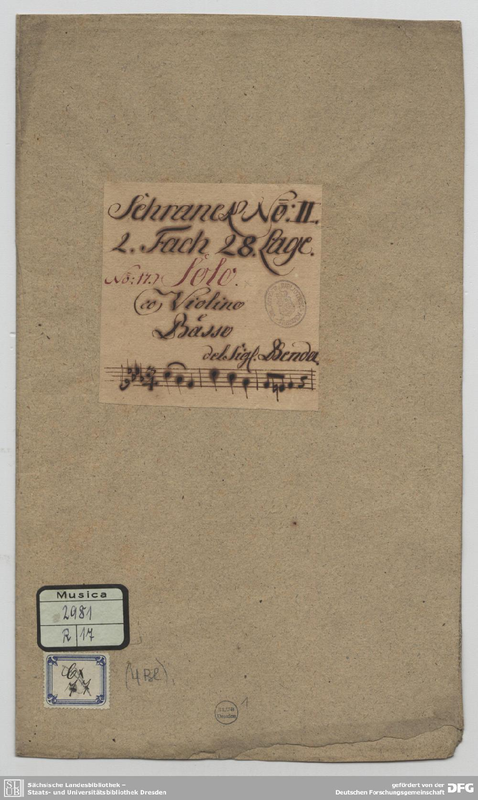 Schranck No: II.
2. Fach 28. Lage.
No: 17.) Solo.
co Violino
e
Basso
del Sigl: Benda.
Musica
2981
R/17
Cx
77
(4 Bl.)
1
SLUB
Dresden
Sächsische Landesbibliothek –
Staats- und Universitätsbibliothek Dresden
gefördert von der
Deutschen Forschungsgemeinschaft
DFG